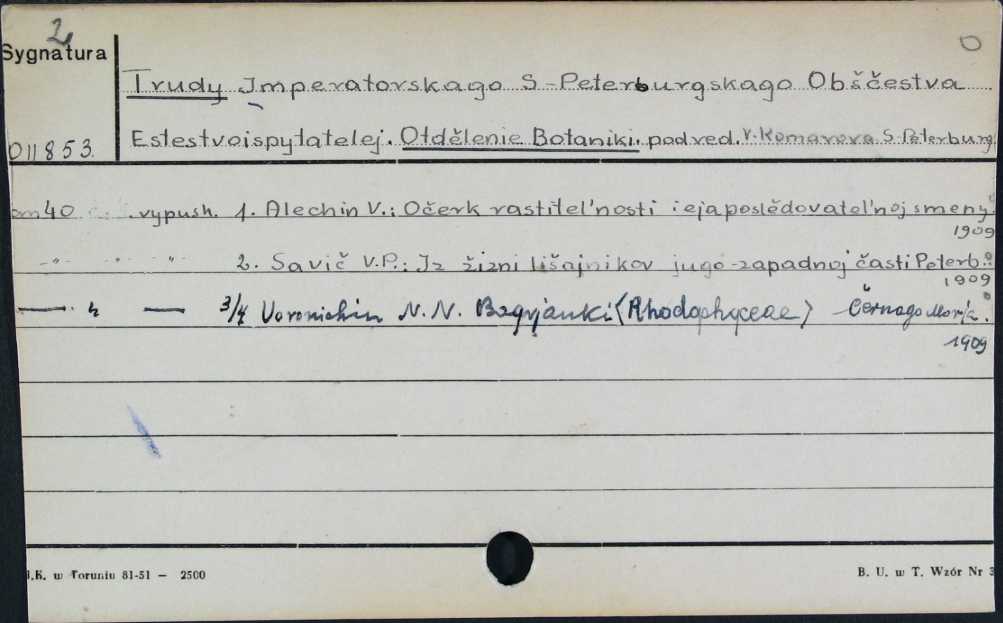 2 0
Sygnatura
Trudy Imperatorskago S-Peterburgskago Obščestva
011853. Estestvoispytatelej. Otdělenie Botaniki. pod red. V. Komarova S-Peterburg.
40 vypush. 1. Alechin V.: Očerk rastitel'nosti i eja poslědovatel'noj smeny
1909
-"- " " 2. Savič V.P.: Iz žizni lišajnikov jugo-zapadnoj časti Peterb.
1909
— " — 3/4 Voronichin N. N. Bagrjanki (Rhodophyceae) Černago Morja.
1909
.K. w Toruniu 81-51 — 2500
B. U. w T. Wzór Nr 3